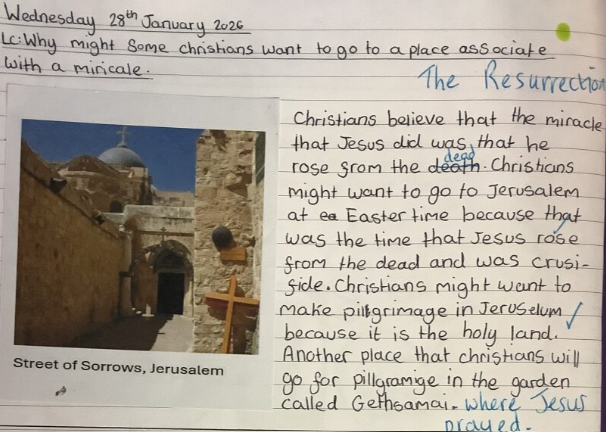 Wednesday 28th January 2026
LC: Why might Some christians want to go to a place associate
with a miricale.
The Resurrection
Christians believe that the miracle
that Jesus did was that he
rose from the death dead. Christians
might want to go to Jerusalem
at ea Easter time because that
was the time that Jesus rose
from the dead and was crusi-
fide. Christians might want to
make pilgrimage in Jeruselum
because it is the holy land.
Another place that christians will
go for pillgramige in the garden
called Gethsamai. where Jesus
prayed.
Street of Sorrows, Jerusalem